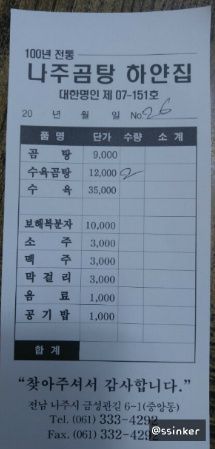 100년 전통
나주곰탕 하얀집
대한명인 제 07-151호
20 . 년 월 일 No. 26
품 명 단가 수량 소 계
곰 탕 9,000
수육곰탕 12,000 2
수 육 35,000
보해복분자 10,000
소 주 3,000
맥 주 3,000
막 걸 리 3,000
음 료 1,000
공 기 밥 1,000
합 계
"찾아주셔서 감사합니다."
전남 나주시 금성관길 6-1(중앙동)
Tel. (061) 333-4292
Fax. (061) 332-4292
@ssinker